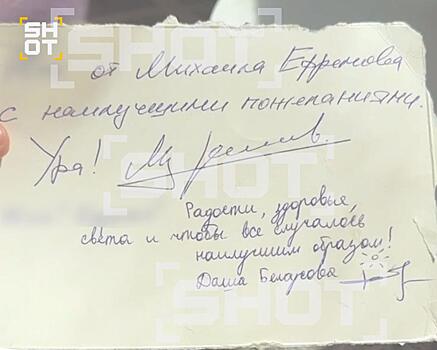 SHOT
от Михаила Ефремова
с наилучшими пожеланиями.
Ура!
Радости, здоровья,
света и чтобы все случалось
наилучшим образом!
Даша Белоусова